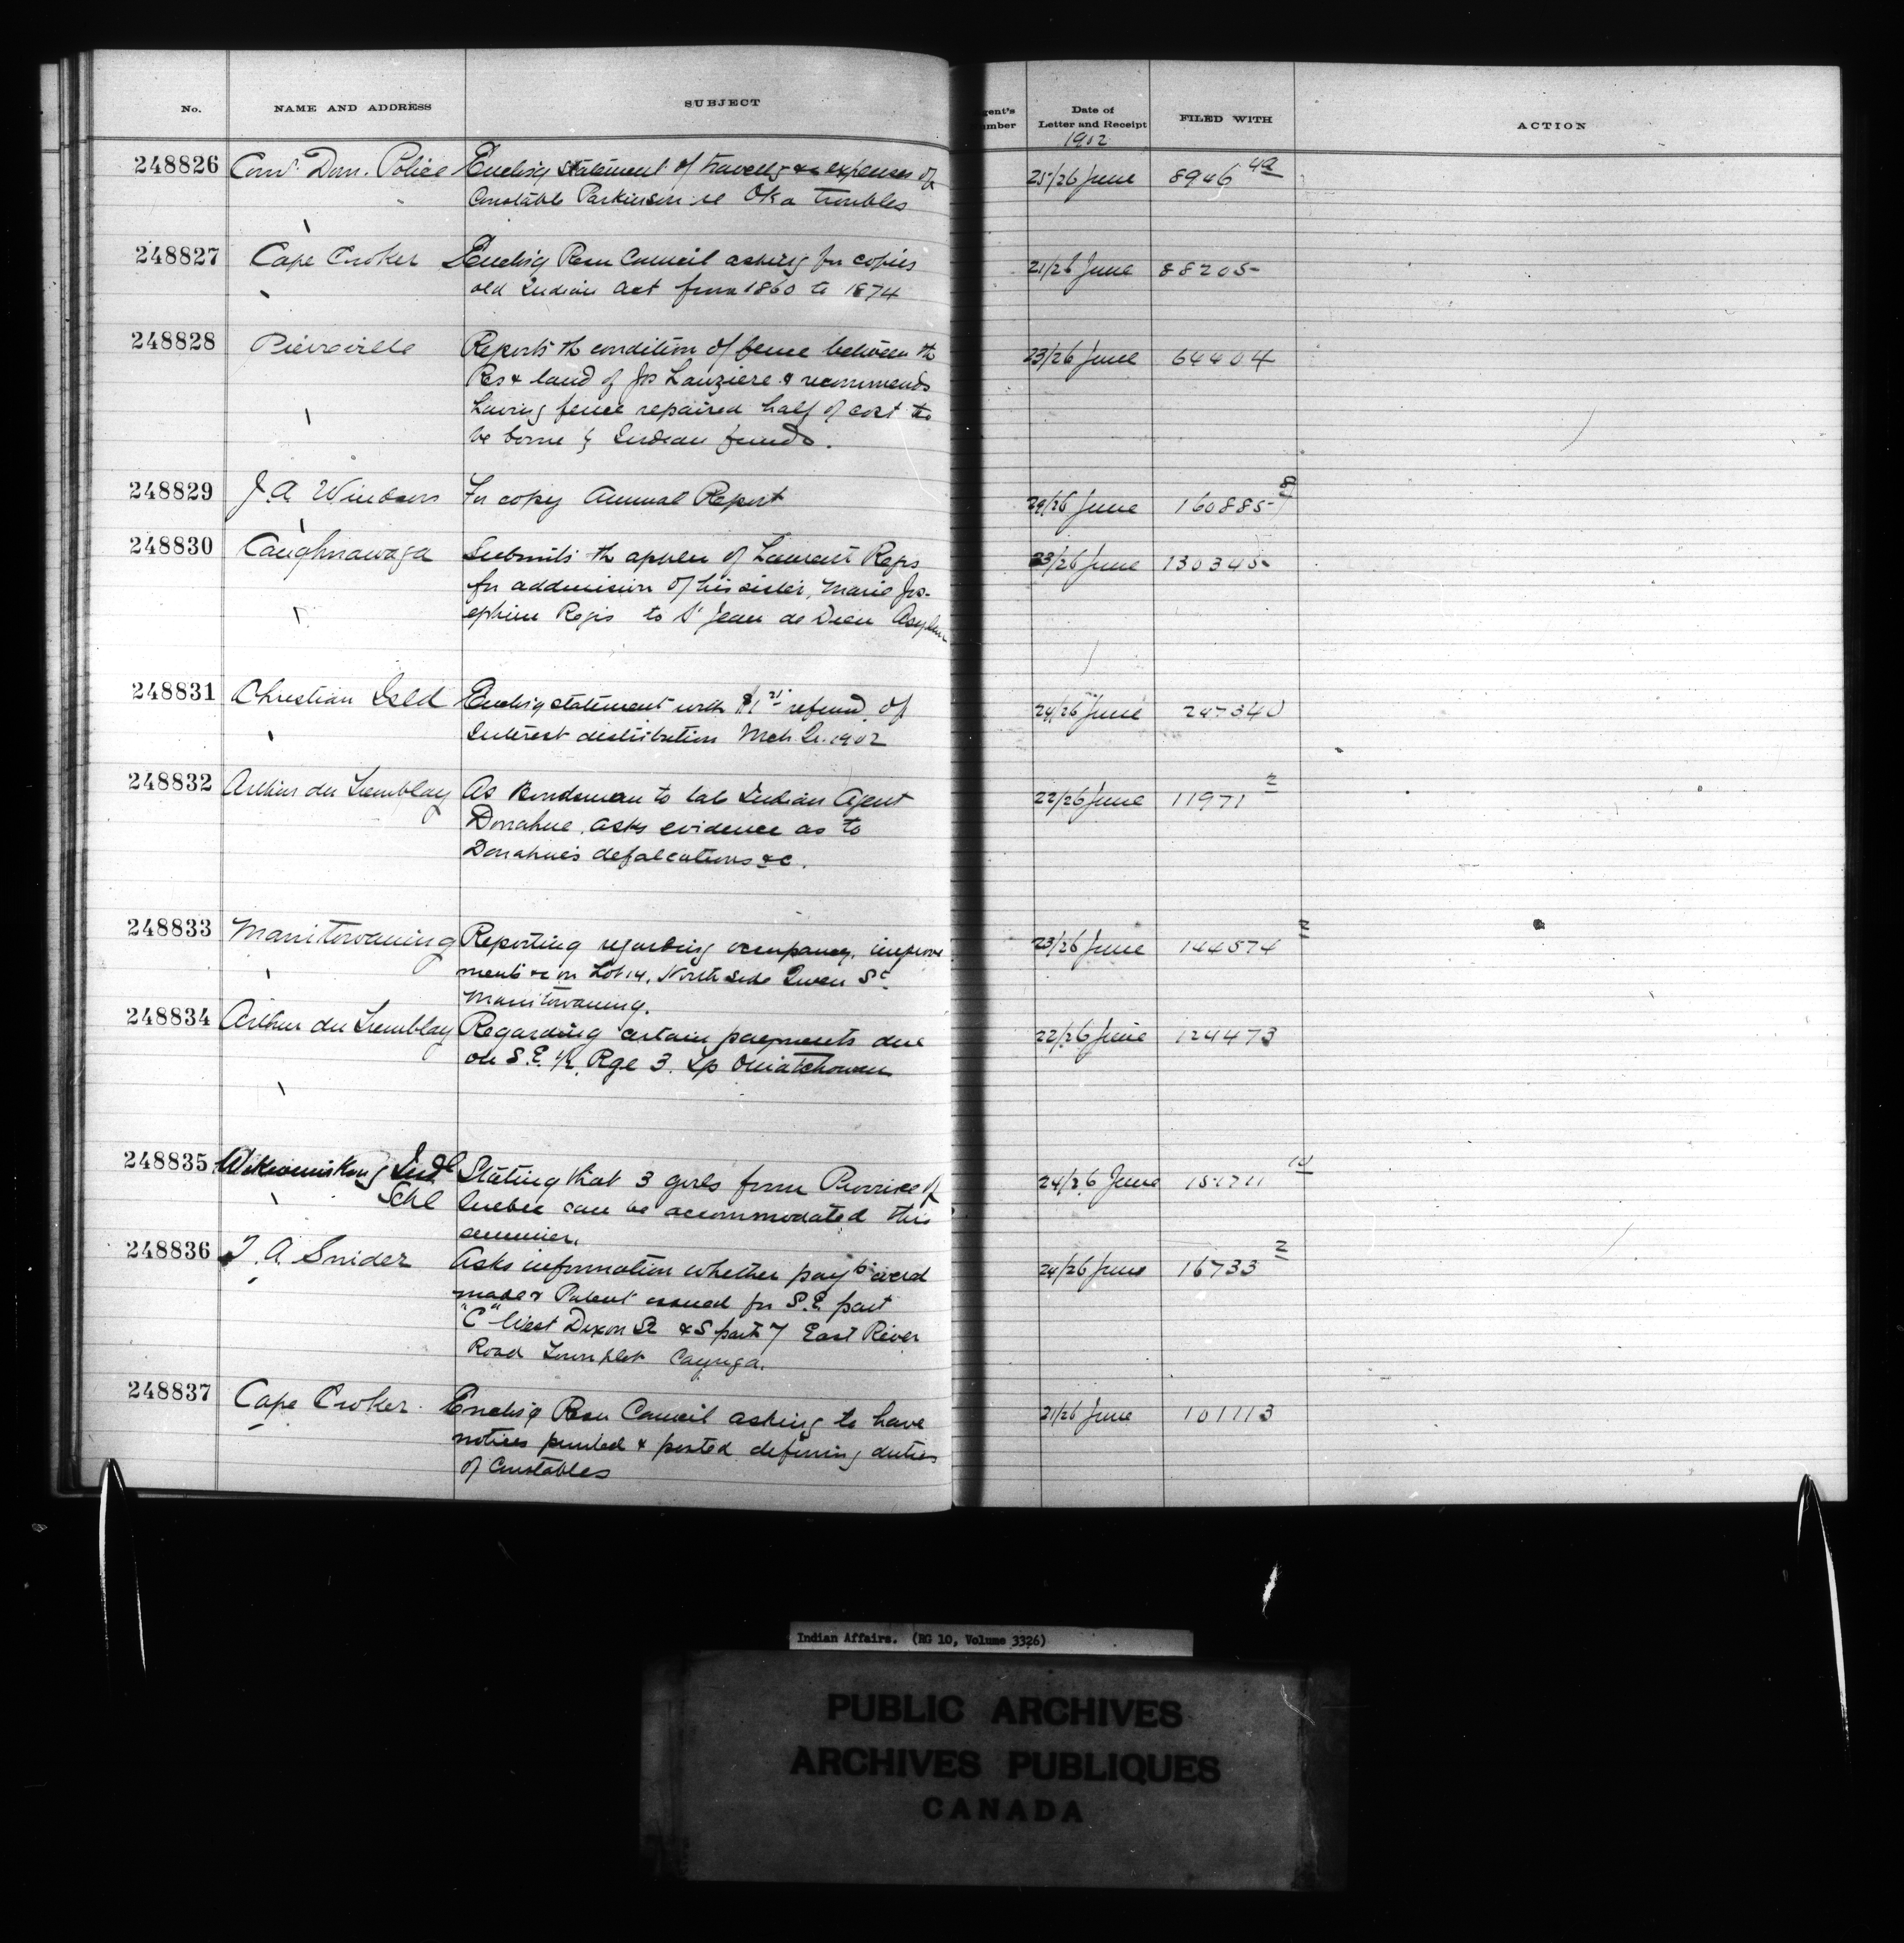 No. NAME AND ADDRESS SUBJECT gent's umber Date of Letter and Receipt FILED WITH ACTION
1902
248826 Com'r Dom. Police Enclos'g statement of travell'g &c expenses of 25/26 June 8946 4a
Constable Parkinson re Oka troubles
248827 Cape Croker Enclos'g Resn Council asking for copies 21/26 June 88205
old Indian Act from 1860 to 1874
248828 Pierreville Reports the condition of fence between the 23/26 June 64404
Res & land of Jos Lauziere & recommends
having fence repaired half of cost to
be borne by Indian funds.
248829 J. A. For copy Annual Report 24/26 June 160885
248830 Caughnawaga Submits the appln of Laurent Regis 23/26 June 130345
for addmission of his sister, Marie Jos-
ephine Regis to St Jean de Dieu Asylum
248831 Christian Isld Enclos'g statement with refund of 24/26 June 247340
Interest distribution Mch Qr. 1902
248832 Arthur du Tremblay As Bondsman to late Indian Agent 22/26 June 11971 2
Donahue, asks evidence as to
Donahue's defalcations &c.
248833 Manitowaning Reporting regarding occupancy, improve 23/26 June 144574 2
ments &c on Lot 14, North side Queen St
Manitowaning.
248834 Arthur du Tremblay Regarding certain payments due 22/26 June 124473
on S.E. ½, Rge 3. Tp Ouiatchouan
248835 Wikwemikong Indl Stating that 3 girls from Province of 24/26 June 151711 10
Schl Quebec can be accommodated this
summer.
248836 T. A. Snider Asks information whether payts were 24/26 June 16733 2
made & Patent issued for S.E. part
"C" West Dixon St & S part 7 East River
Road Townplot Cayuga.
248837 Cape Croker Enclos'g Resn Council asking to have 21/26 June 101113
notices printed & posted defining duties
of Constables
Indian Affairs. (RG 10, Volume 3326)
PUBLIC ARCHIVES
ARCHIVES PUBLIQUES
CANADA